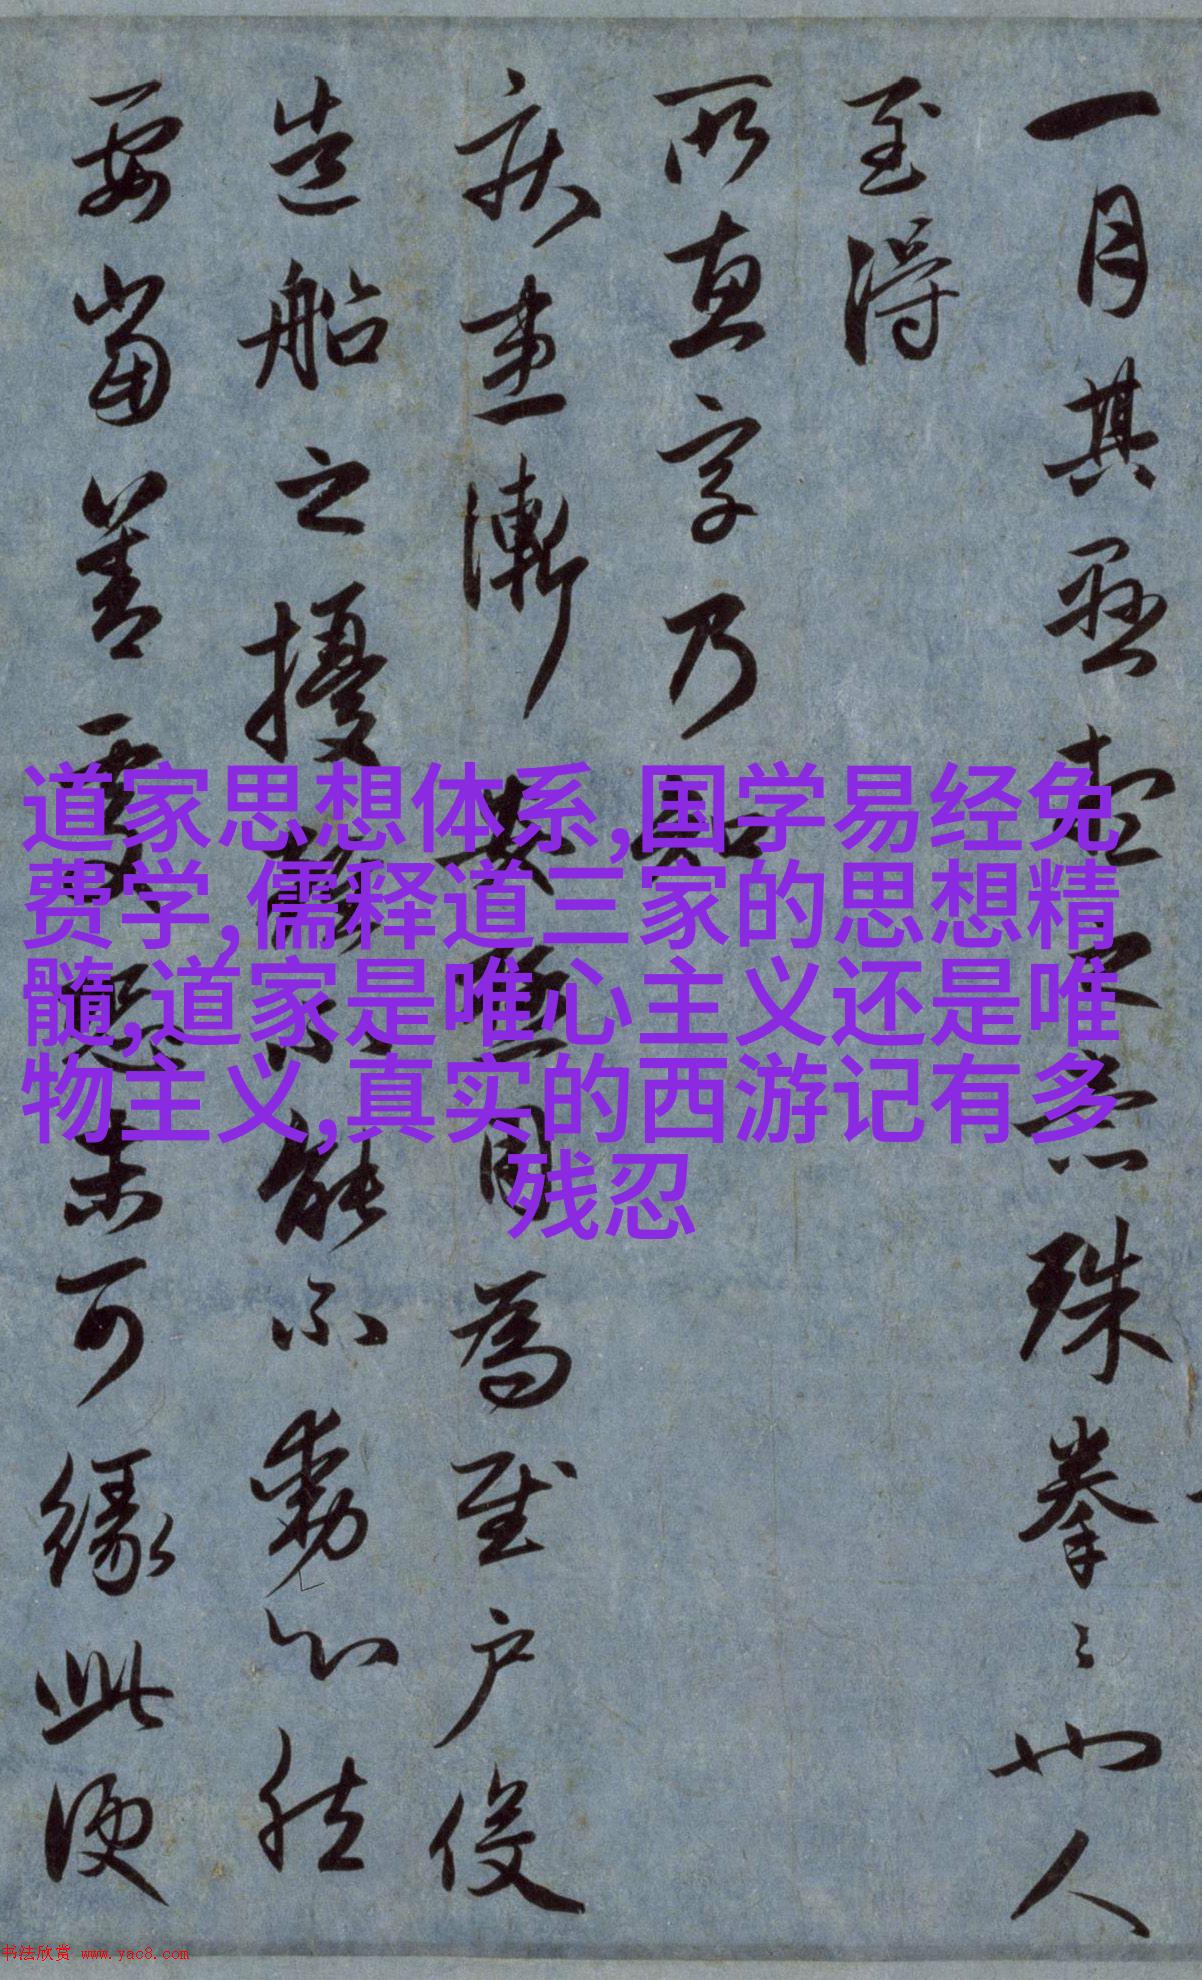 道家思想体系,国学易经免
费学,儒释道三家的思想精
髓,道家是唯心主义还是唯
物主义,真实的西游记有多
残忍
一月其珠拳〻也人
至得
所惠字乃知
漸安為户侵
造船之擾不能不動心然
要當善處恐未可緣此便
书法欣赏 www.yac8.com